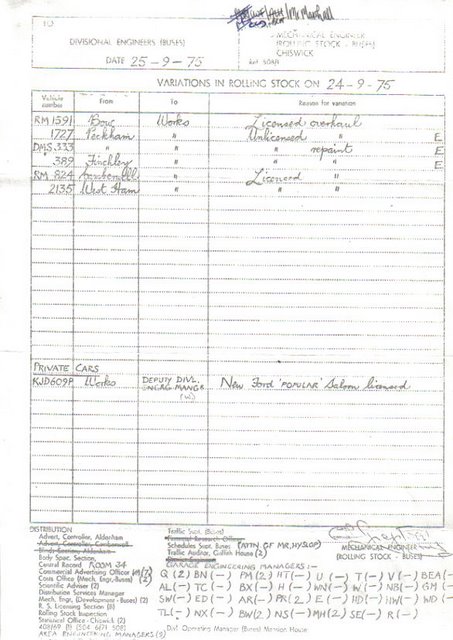 Mr Marshall
TO
DIVISIONAL ENGINEERS (BUSES)
DATE 25-9-75
MECHANICAL ENGINEER
(ROLLING STOCK - BUSES)
CHISWICK
VARIATIONS IN ROLLING STOCK ON 24-9-75
Vehicle number From To Reason for variation
RM 1591 Bow Works Licensed overhaul
1727 Peckham " Unlicensed " E
DMS.333 " " " repaint E
389 Finchley " " " E
RM 824 " Licensed "
2135 West Ham " " "
PRIVATE CARS
KJD609P Works DEPUTY DIVL. ENGNG MANGR (W) New Ford 'POPULAR' Saloon licensed
DISTRIBUTION
Advert, Controller, Aldenham
Advert, Controller, Camberwell
Blinds Section, Aldenham
Body Spec, Section,
Central Record ROOM 34
Commercial Advertising Officer (7)
Costs Office (Mech. Engr, Buses) (2)
Scientific Adviser (2)
Distribution Services Manager
Mech. Engr, (Development - Buses) (2)
R. S. Licensing Section (8)
Rolling Stock Inspection
Statistical Office - Chiswick (2)
AREA ENGINEERING MANAGERS(5)
Traffic Supt. (Buses)
Personal Research Officer
Schedules Supt. Buses (ATTN. OF MR, HYSLOP)
Traffic Auditor, Gallish House (2)
District Secretary
GARAGE ENGINEERING MANAGERS:-
Q (2) BN (-) PM (2) HT (-) U (-) T (-) V (-) BEA (-
AL (-) TC (-) BX (-) H (-) WN (-) W (-) NB (-) GM (-
SW (-) ED (-) AR (-) PR (2) E (-) HD (-) HW (-) WD (-
TL (-) NX (-) BW (2) NS (-) MH (2) SE (-) R (-)
Divl Operating Manager (Buses) Mansion House
MECHANICAL ENGINEER
(ROLLING STOCK - BUSES)